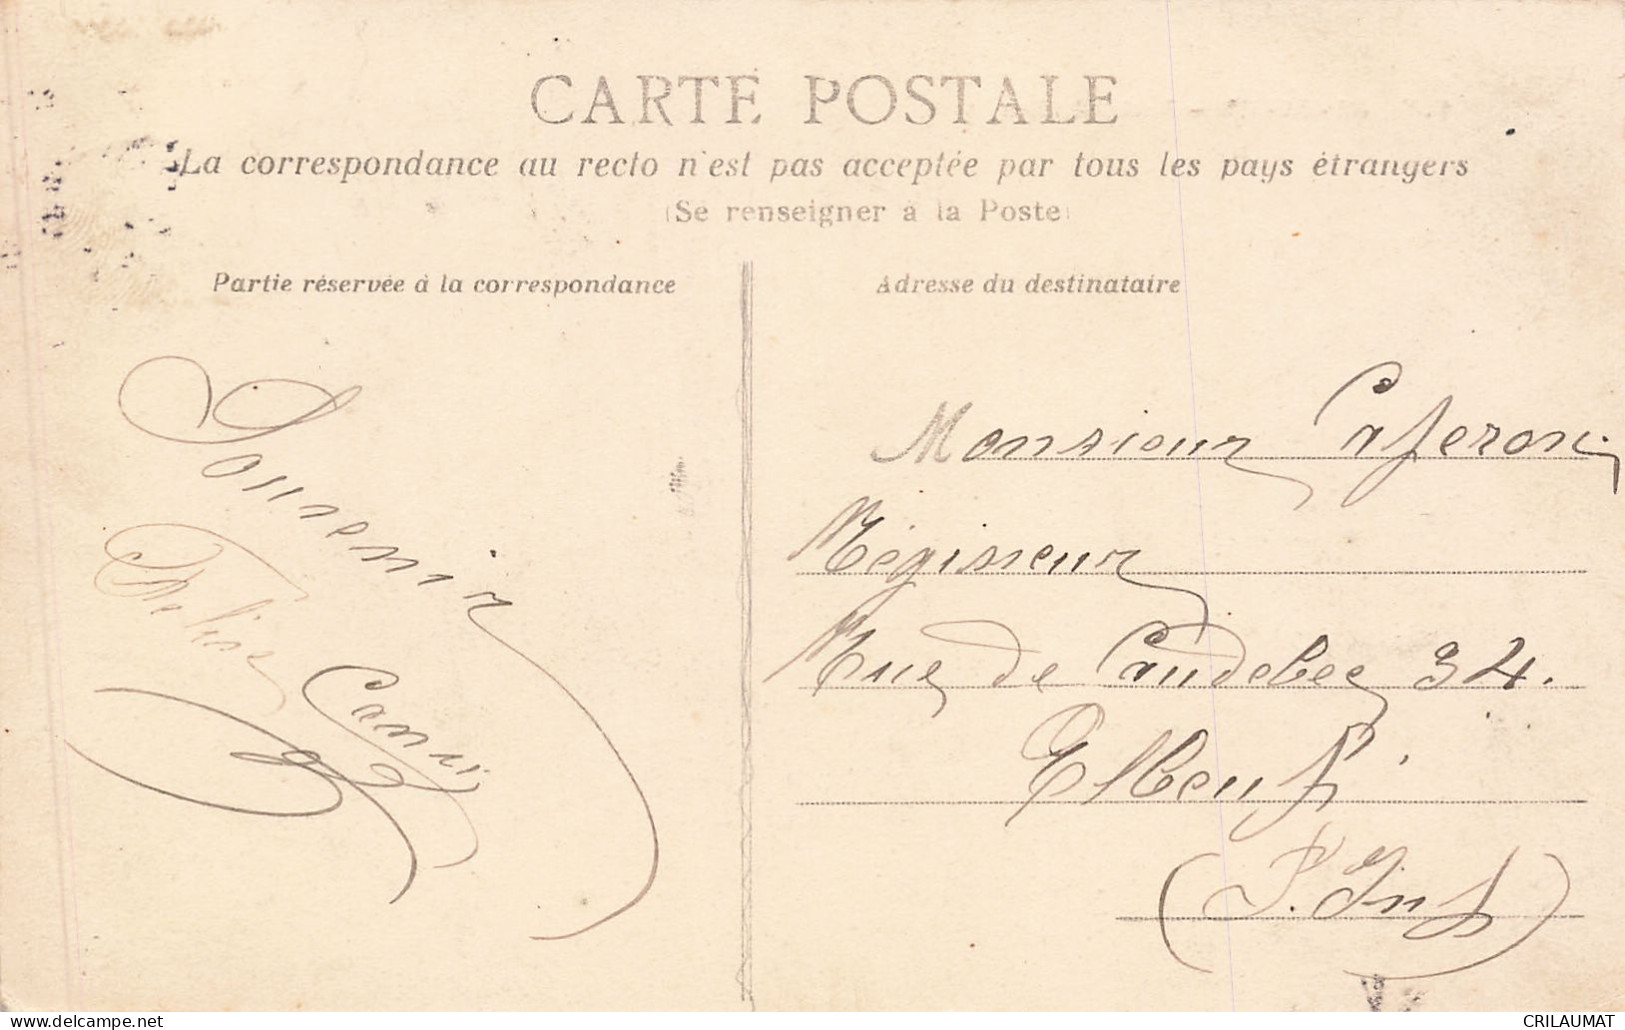 CARTE POSTALE
La correspondance au recto n'est pas acceptée par tous les pays étrangers
(Se renseigner à la Poste)
Partie réservée à la correspondance
Adresse du destinataire
Souvenir
Monsieur Caferon
Mégissieur
Rue de Caudebec 34.
Elbeuf
(S. Inf)
www.delcampe.net
CRILAUMAT